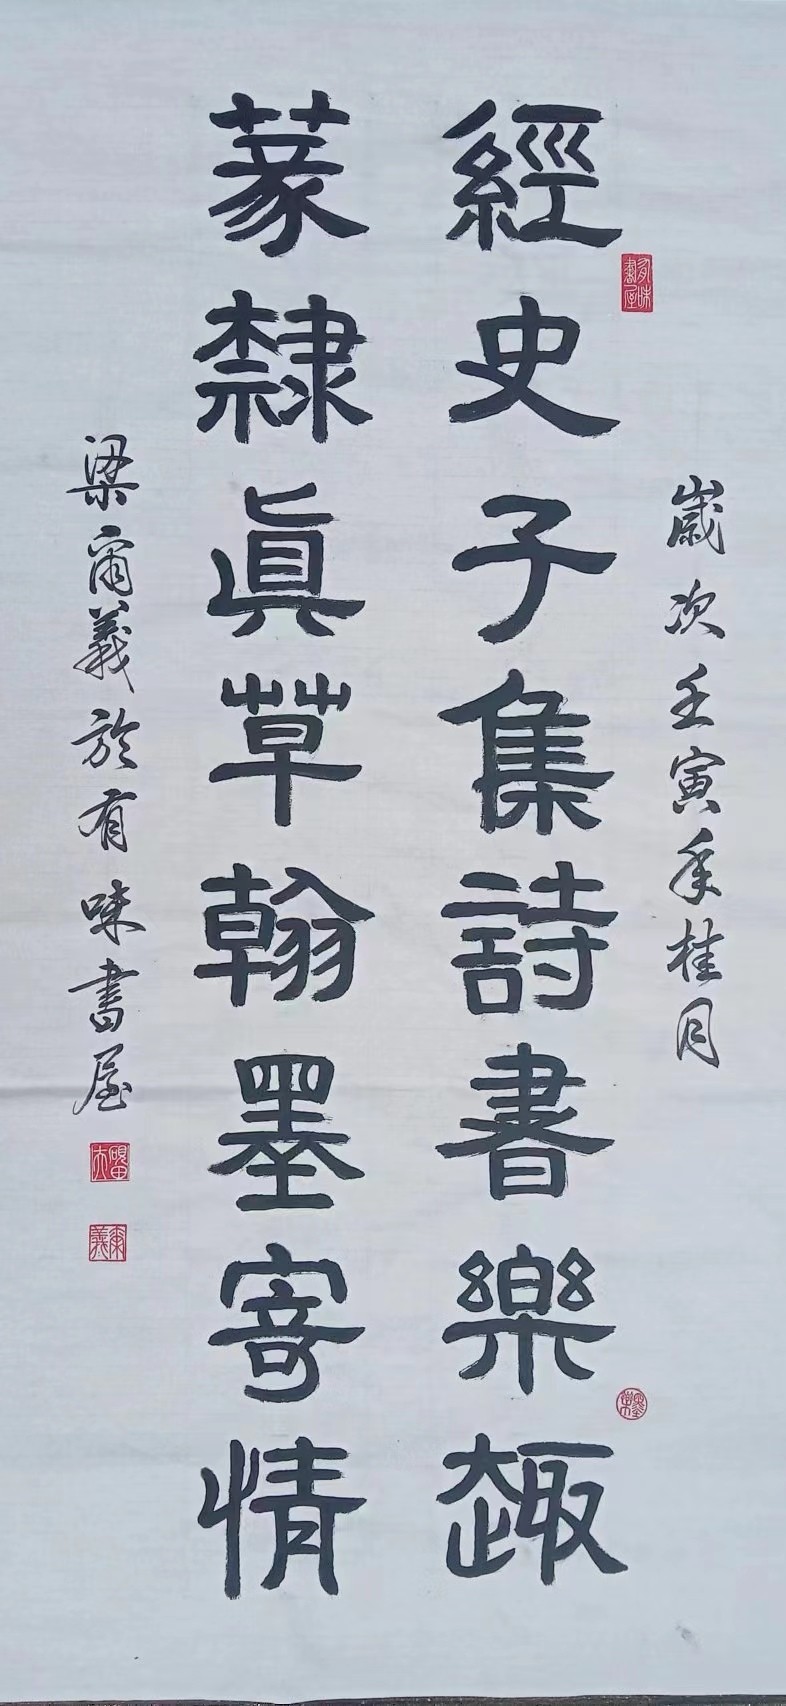 歲次壬寅年桂月
經史子集詩書樂趣
篆隸眞草翰墨寄情
梁甭義於有味書屋
有味書屋